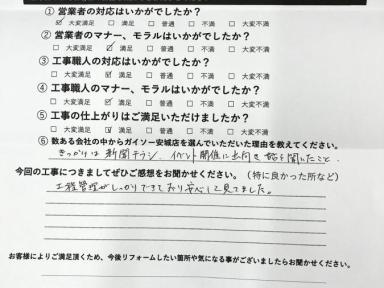 ① 営業者の対応はいかがでしたか？
☑ 大変満足 □ 満足 □ 普通 □ 不満 □ 大変不満
② 営業者のマナー、モラルはいかがでしたか？
□ 大変満足 ☑ 満足 □ 普通 □ 不満 □ 大変不満
③ 工事職人の対応はいかがでしたか？
□ 大変満足 ☑ 満足 □ 普通 □ 不満 □ 大変不満
④ 工事職人のマナー、モラルはいかがでしたか？
□ 大変満足 ☑ 満足 □ 普通 □ 不満 □ 大変不満
⑤ 工事の仕上がりはご満足いただけましたか？
□ 大変満足 ☑ 満足 □ 普通 □ 不満 □ 大変不満
⑥ 数ある会社の中からガイソー安城店を選んでいただいた理由を教えてください。
きっかけは新聞チラシ、イベント開催に出向き 話を聞いたこと。
今回の工事につきましてぜひご感想をお聞かせください。（特に良かった所など）
工程管理がしっかりできており安心して見てました。
お客様によりご満足頂くため、今後リフォームしたい箇所や気になる事がございましたらお聞かせください。